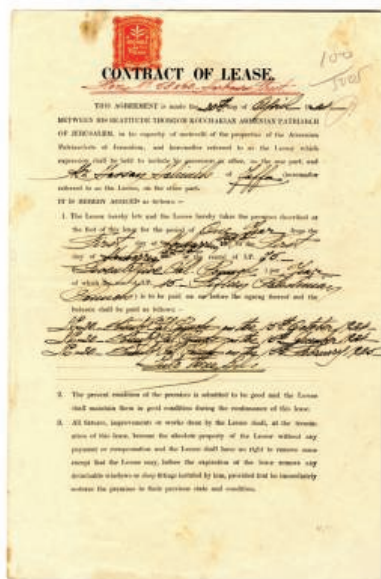 100
CONTRACT OF LEASE.
THIS AGREEMENT is made the 30th day of April
BETWEEN HIS BEATITUDE THORGOM KOUCHAKIAN ARMENIAN PATRIARCH
OF JERUSALEM, in his capacity of mutevelli of the properties of the Armenian
Patriarchate of Jerusalem, and hereinafter referred to as the Lessor which
expression shall be held to include his successors in office, on the one part, and
Mr Hassan of Jaffa (hereinafter
referred to as the Lessee, on the other part.
IT IS HEREBY AGREED as follows:—
1. The Lessor hereby lets and the Lessee hereby takes the premises described at
the foot of this lease for the period of One Year from the
First day of to the First
day of at the rental of LP. 75-
Seventy five Pal. Pounds ( per Year
of which the sum LP. 15- Fifteen Palestinian
Pounds ) is to be paid on or before the signing thereof and the
balance shall be paid as follows:—
on the 15th October
on the
on the February
2. The present condition of the premises is admitted to be good and the Lessee
shall maintain them in good condition during the continuance of this lease.
3. All fixtures, improvements or works done by the Lessee shall, at the termin-
ation of this lease, become the absolute property of the Lessor without any
payment or compensation and the Lessee shall have no right to remove same
except that the Lessee may, before the expiration of the lease remove any
detachable windows or shop fittings installed by him, provided that he immediately
restores the premises to their previous state and condition.